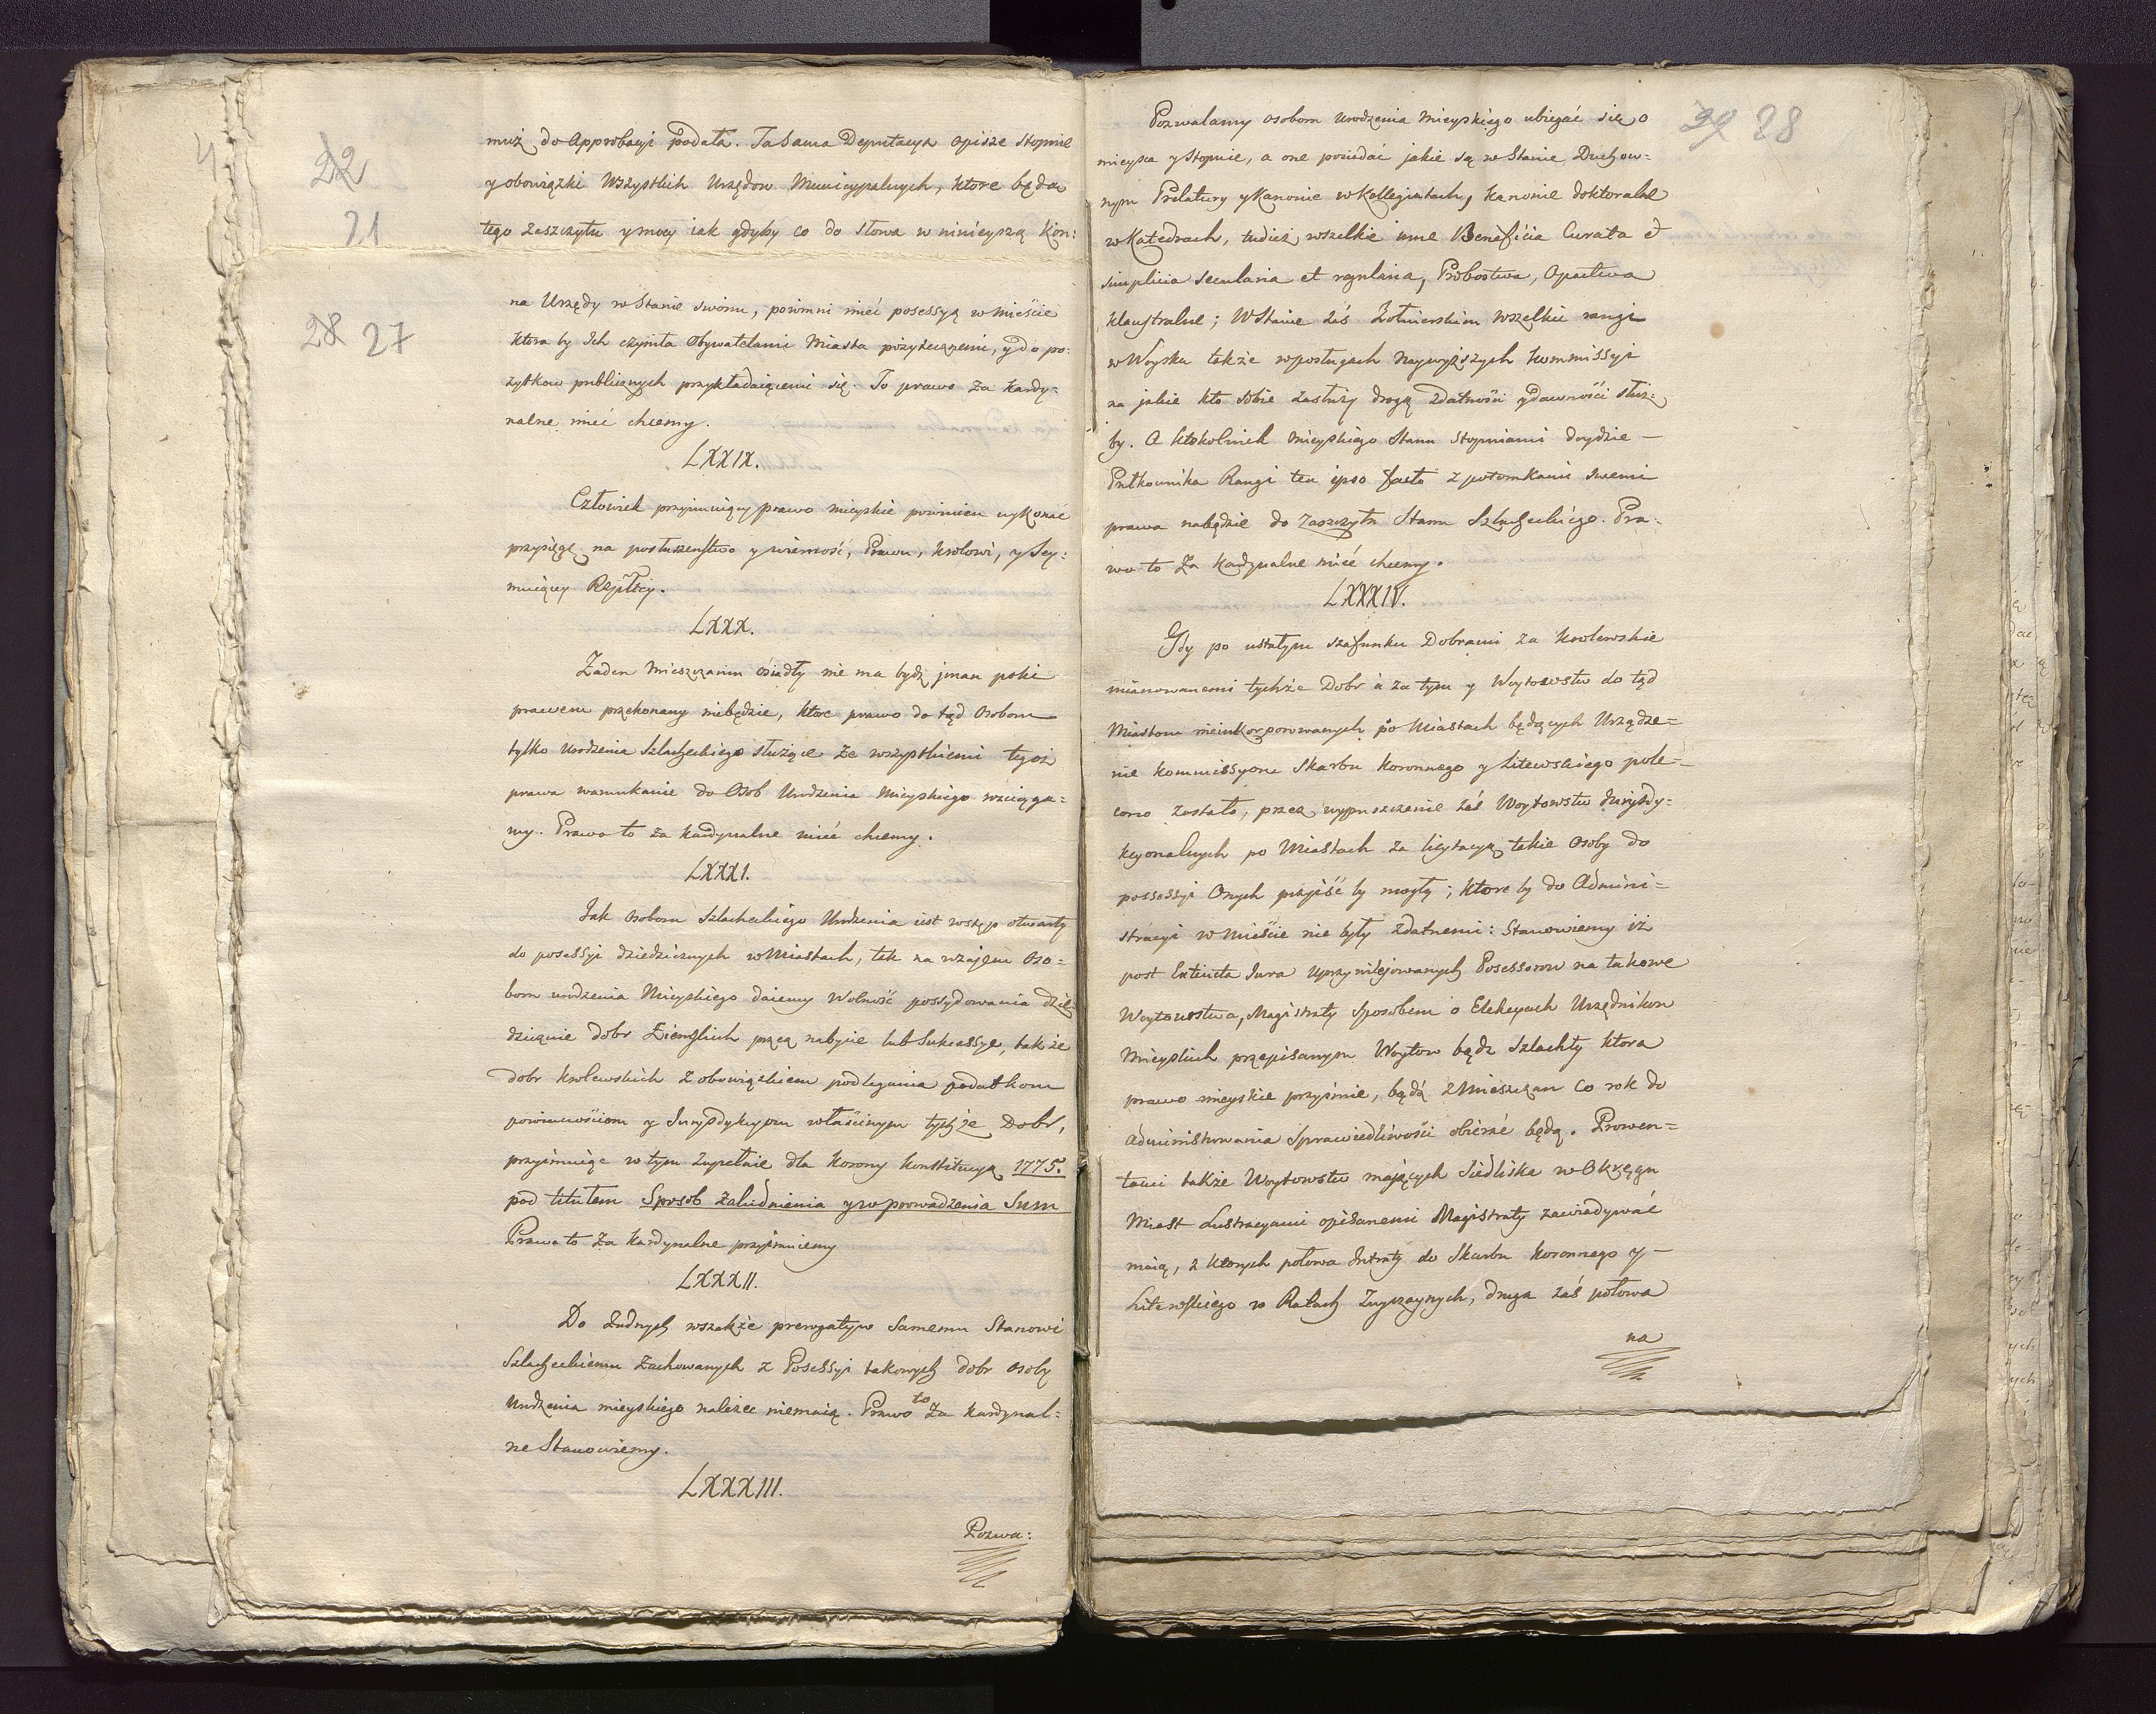 22
21
muż do Approbacyi podała. Ta Sama Deputacya opisze stopnie
y obowiązki Wszystkich Urzędow Municypalnych, ktore będą
tego zaszczytu y mocy iak gdyby co do słowa w ninieyszą Kon:
28 27
na Urzędy w Stanie swoim, powinni mieć possessyą w mieście
ktora by Ich czyniła Obywatelami Miasta pożytecznemi, y do po:
żytkow publicznych przykładaiącemi się. To prawo za kardy:
nalne mieć chcemy.
LXXIX.
Człowiek przyimuiący prawo mieyskie powinien wykonać
przysięgę na posłuszeństwo y wierność, Prawu, Krolowi, y Sey:
muiącey Rzpltey.
LXXX.
Żaden Mieszczanin osiadły nie ma bydź iman poki
prawem przekonany niebędzie, ktore prawo do tąd Osobom
tylko Urodzenia Szlacheckiego służące ze wszystkiemi tegoż
prawa warunkami do Osob Urodzenia Mieyskiego rozciąga=
my. Prawo to za kardynalne mieć chcemy.
LXXXI.
Jak osobom Szlacheckiego Urodzenia iest wstęp otwarty
do possessyi dziedzicznych w Miastach, tak na wzajem Oso=
bom urodzenia Mieyskiego daiemy Wolność possydowania dzie=
dzicznie dobr Ziemskich przez nabycie lub Sukcessye, także
dobr Krolewskich z obowiązkiem podlegania podatkom
powinnościom y Jurysdykcyom właściwym tychże Dobr,
przyimuiąc w tym zupełnie dla Korony Konstitucyą 1775.
pod titułem Sposob Zaludnienia y wprowadzenia Summ
Prawo to za kardynalne przyimuiemy
LXXXII.
Do żadnych wszakże prerogatyw Samemu Stanowi
Szlacheckiemu zachowanych z Posessyi takowych dobr osoby
Urodzenia mieyskiego należeć niemaią. Prawo to za kardynal=
ne Stanowiemy.
LXXXIII.
Pozwa:
39 28
Pozwalamy osobom urodzenia mieyskiego ubiegać się o
mieysca y stopnie, a one posiadać jakie są w Stanie Duchow=
nym Prelatury y Kanonie w Kollegiatach, Kanonie doktoralne
w Katedrach, tudież wszelkie inne Beneficia Curata et
simplicia secularia et regularia, Probostwa, Opactwa
klaustralne; W Stanie zaś Żołnierskim wszelkie rangi
w Woysku także w posługach naywyższych Kommissyi
na jakie kto sobie zasłuży drogą zdatności y dawności służ=
by. A ktokolwiek mieyskiego Stanu stopniami doydzie –
Pułkownika Rangi ten ipso facto z potomkami swemi
prawa nabędzie do zaszczytu Stanu Szlacheckiego. Pra=
wo to za kardynalne mieć chcemy.
LXXXIV.
Gdy po ustałym szafunku Dobrami za krolewskie
mianowanemi tychże Dobr a za tym y Woytowstw do tąd
Miastom nieinkorporowanych po Miastach będących Urządze=
nie Kommissyom Skarbu Koronnego y Litewskiego pole=
cono zostało, przez wypuszczenie zaś Woytowstw Jurysdy=
kcyonalnych po Miastach za licytacyą takie Osoby do
possessyi Onych przyjść by mogły; ktore by do Admini=
stracyi w mieście nie były zdatnemi: Stanowiemy iż
post Extincta Jura uprzywilejowanych Posessorow na takowe
Woytowstwa, Magistraty Sposobem o Elekcyach Urzędnikow
Mieyskich przepisanym Woytow bądz Szlachty ktora
prawo mieyskie przyimie, bądź z Mieszczan co rok do
administrowania Sprawiedliwości obierać będą. Prowen=
tami także Woytowstw mających Siedliska w Okręgu
Miast Lustracyami opisanemi Magistraty zawiadywać
maią, z ktorych połowa Intraty do Skarbu Koronnego y –
Litewskiego w Ratach Zwyczaynych, druga zaś połowa
na